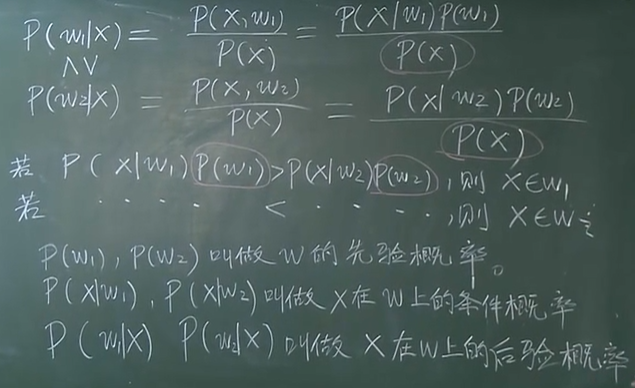 P(w₁|X) = P(X,w₁)/P(X) = P(X|w₁)P(w₁)/P(X)
∧∨
P(w₂|X) = P(X,w₂)/P(X) = P(X|w₂)P(w₂)/P(X)
若 P(X|w₁)P(w₁)>P(X|w₂)P(w₂),则 X∈w₁
若 · · · · · < · · · · ·,则 X∈w₂
P(w₁), P(w₂)叫做w的先验概率。
P(X|w₁), P(X|w₂)叫做X在w上的条件概率
P(w₁|X) P(w₂|X)叫做X在w上的后验概率